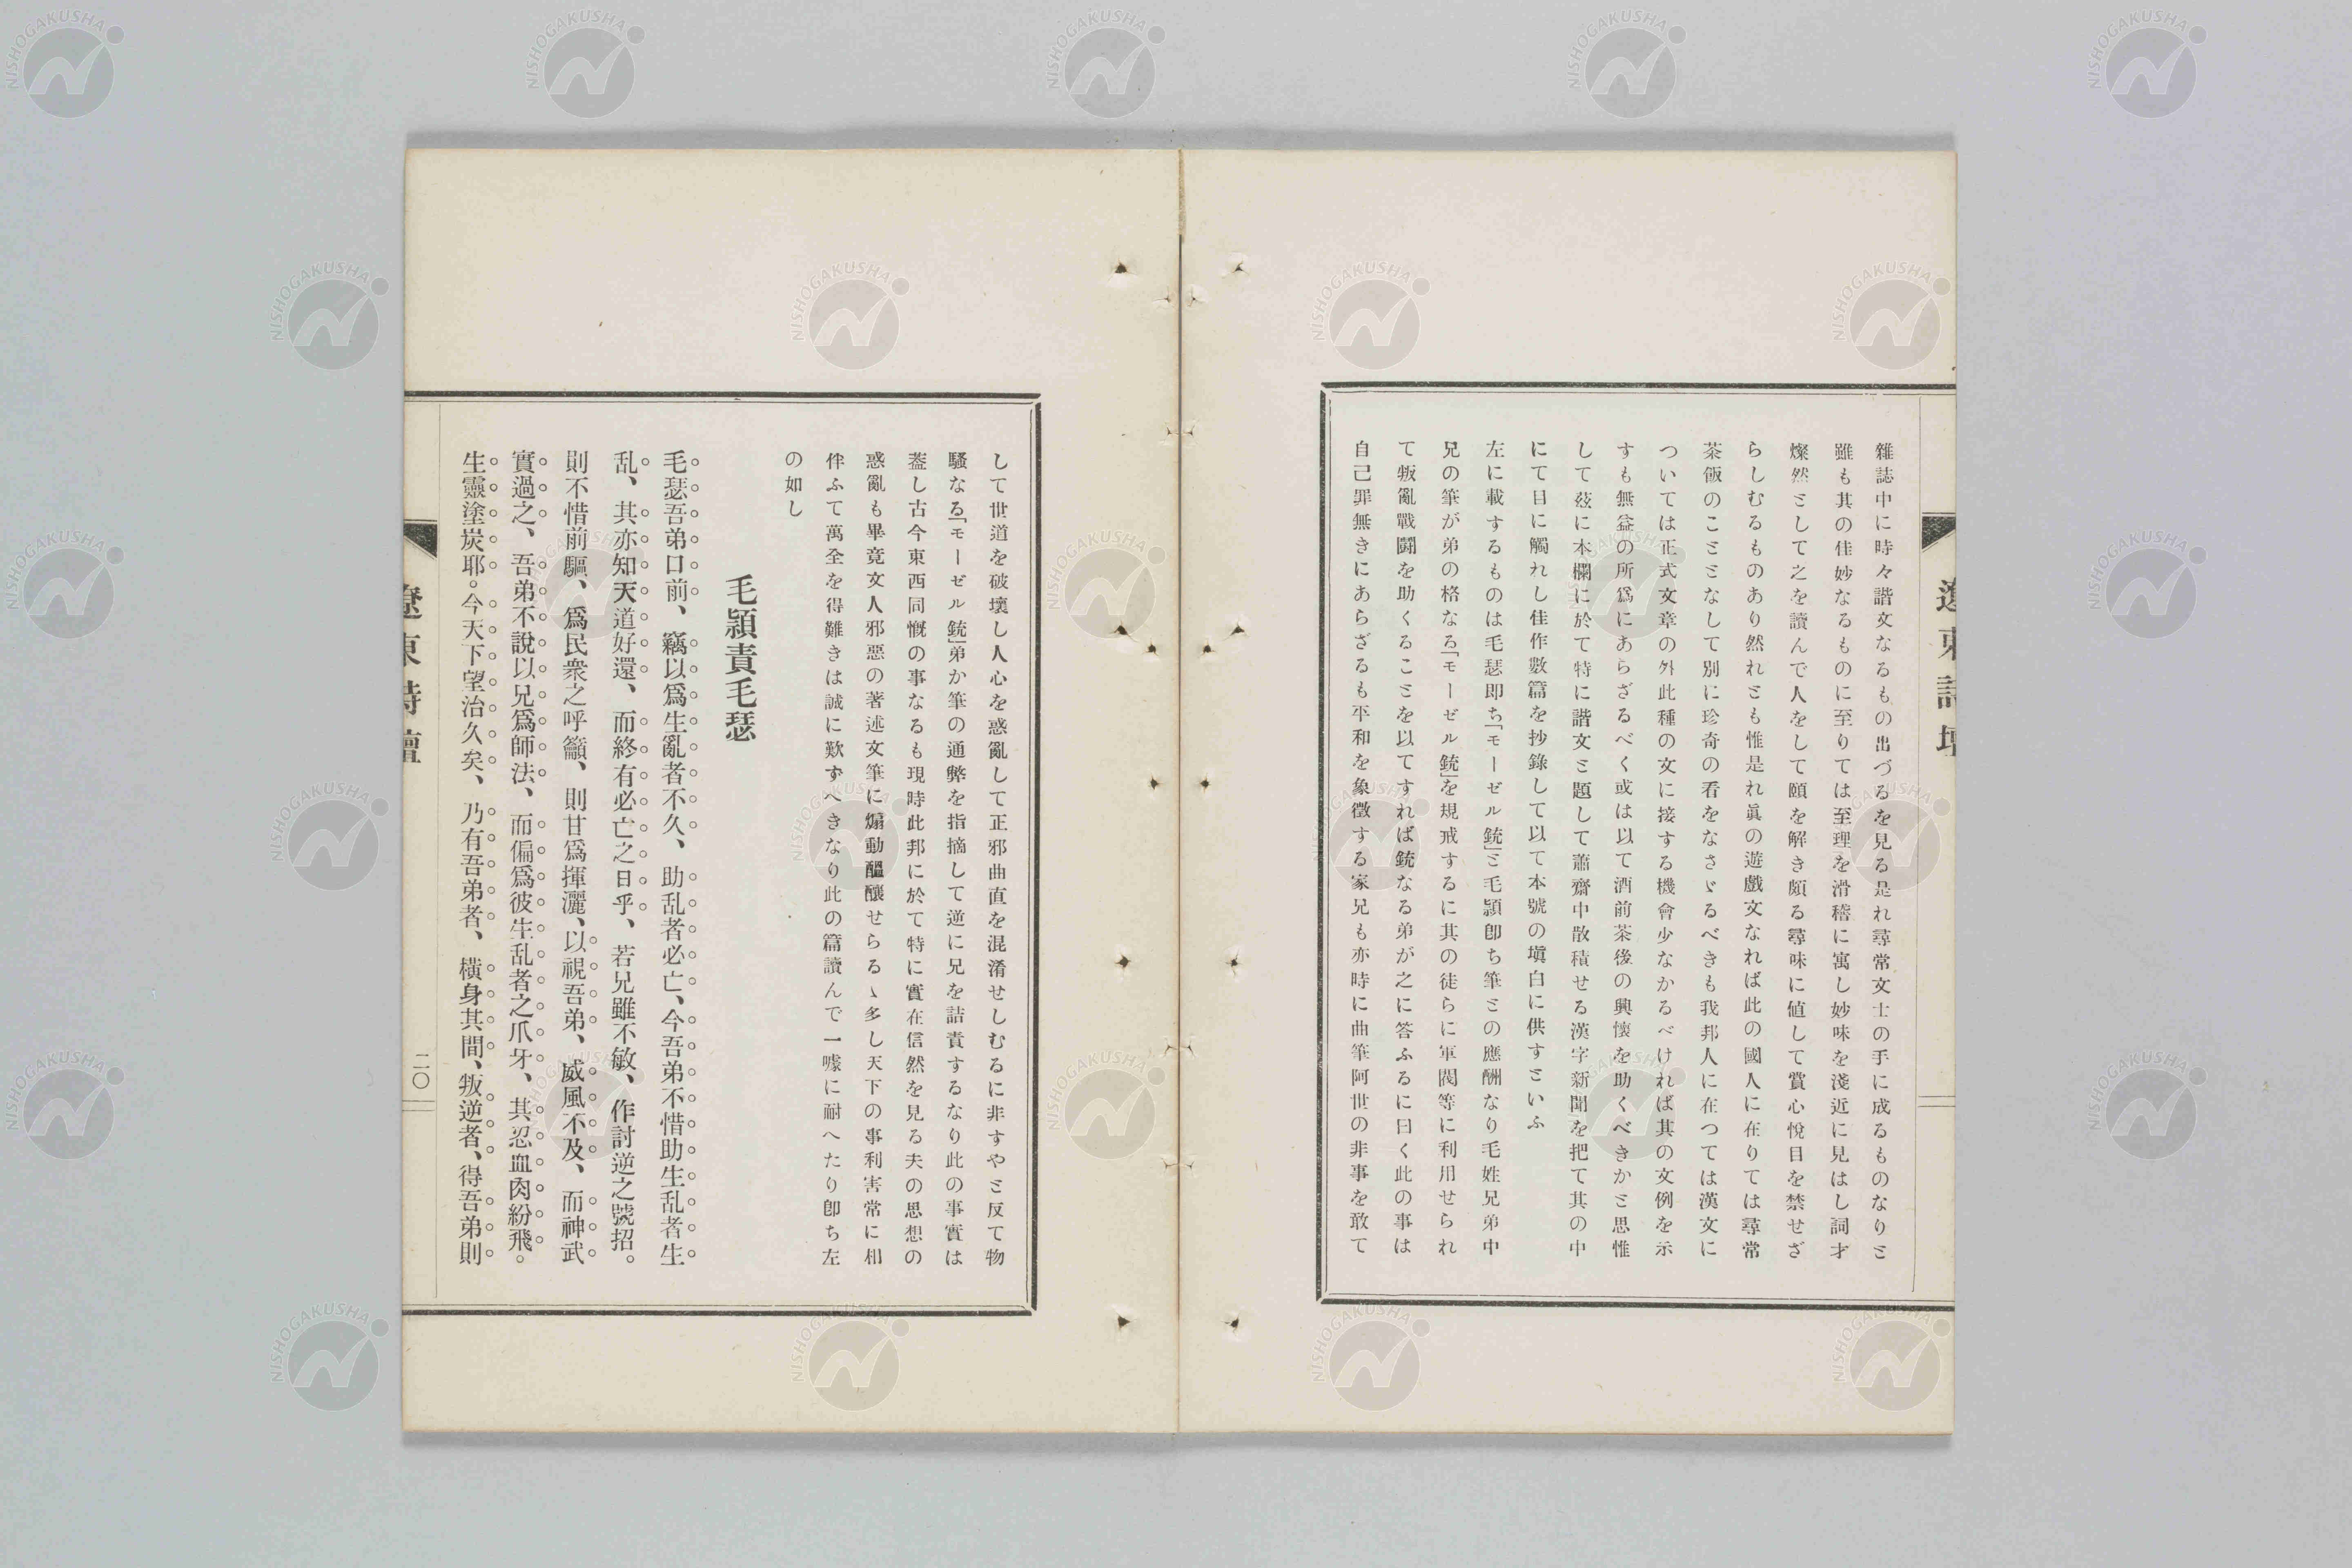 雜誌中に時々諧文なるもの出づるを見る是れ尋常文士の手に成るものなりと
雖も其の佳妙なるものに至りては至理を滑稽に寓し妙味を淺近に見はし詞才
燦然として之を讀んで人をして頤を解き頗る尋味に値して賞心悅目を禁せざ
らしむるものあり然れとも惟是れ眞の遊戲文なれば此の國人に在りては尋常
茶飯のことゝなして別に珍奇の看をなさゞるべきも我邦人に在つては漢文に
ついては正式文章の外此種の文に接する機會少なかるべければ其の文例を示
すも無益の所爲にあらざるべく或は以て酒前茶後の興懷を助くべきかと思惟
して玆に本欄に於て特に諧文と題して蕭齋中散積せる漢字新聞を把て其の中
にて目に觸れし佳作數篇を抄錄して以て本號の塡白に供すといふ
左に載するものは毛瑟即ち「モーゼル銃」と毛穎卽ち筆との應酬なり毛姓兄弟中
兄の筆が弟の格なる「モーゼル銃」を規戒するに其の徒らに軍閥等に利用せられ
て叛亂戰鬪を助くることを以てすれば銃なる弟が之に答ふるに曰く此の事は
自己罪無きにあらざるも平和を象徵する家兄も亦時に曲筆阿世の非事を敢て
遼東詩壇
して世道を破壞し人心を惑亂して正邪曲直を混淆せしむるに非すやと反て物
騷なる「モーゼル銃」弟か筆の通弊を指摘して逆に兄を詰責するなり此の事實は
葢し古今東西同慨の事なるも現時此邦に於て特に實在信然を見る夫の思想の
惑亂も畢竟文人邪惡の著述文筆に煽動醞釀せらるゝ多し天下の事利害常に相
伴ふて萬全を得難きは誠に歎ずへきなり此の篇讀んで一噱に耐へたり卽ち左
の如し
毛穎責毛瑟
毛瑟吾弟口前、竊以爲生亂者不久、助乱者必亡、今吾弟不惜助生乱者生
乱、其亦知天道好還、而終有必亡之日乎、若兄雖不敏、作討逆之號招。
則不惜前驅、爲民衆之呼籲、則甘爲揮灑、以視吾弟、威風不及、而神武
實過之、吾弟不說以兄爲師法、而偏爲彼生乱者之爪牙、其忍血肉紛飛。
生靈塗炭耶。今天下望治久矣、乃有吾弟者、橫身其間、叛逆者、得吾弟則
遼東詩壇
二〇